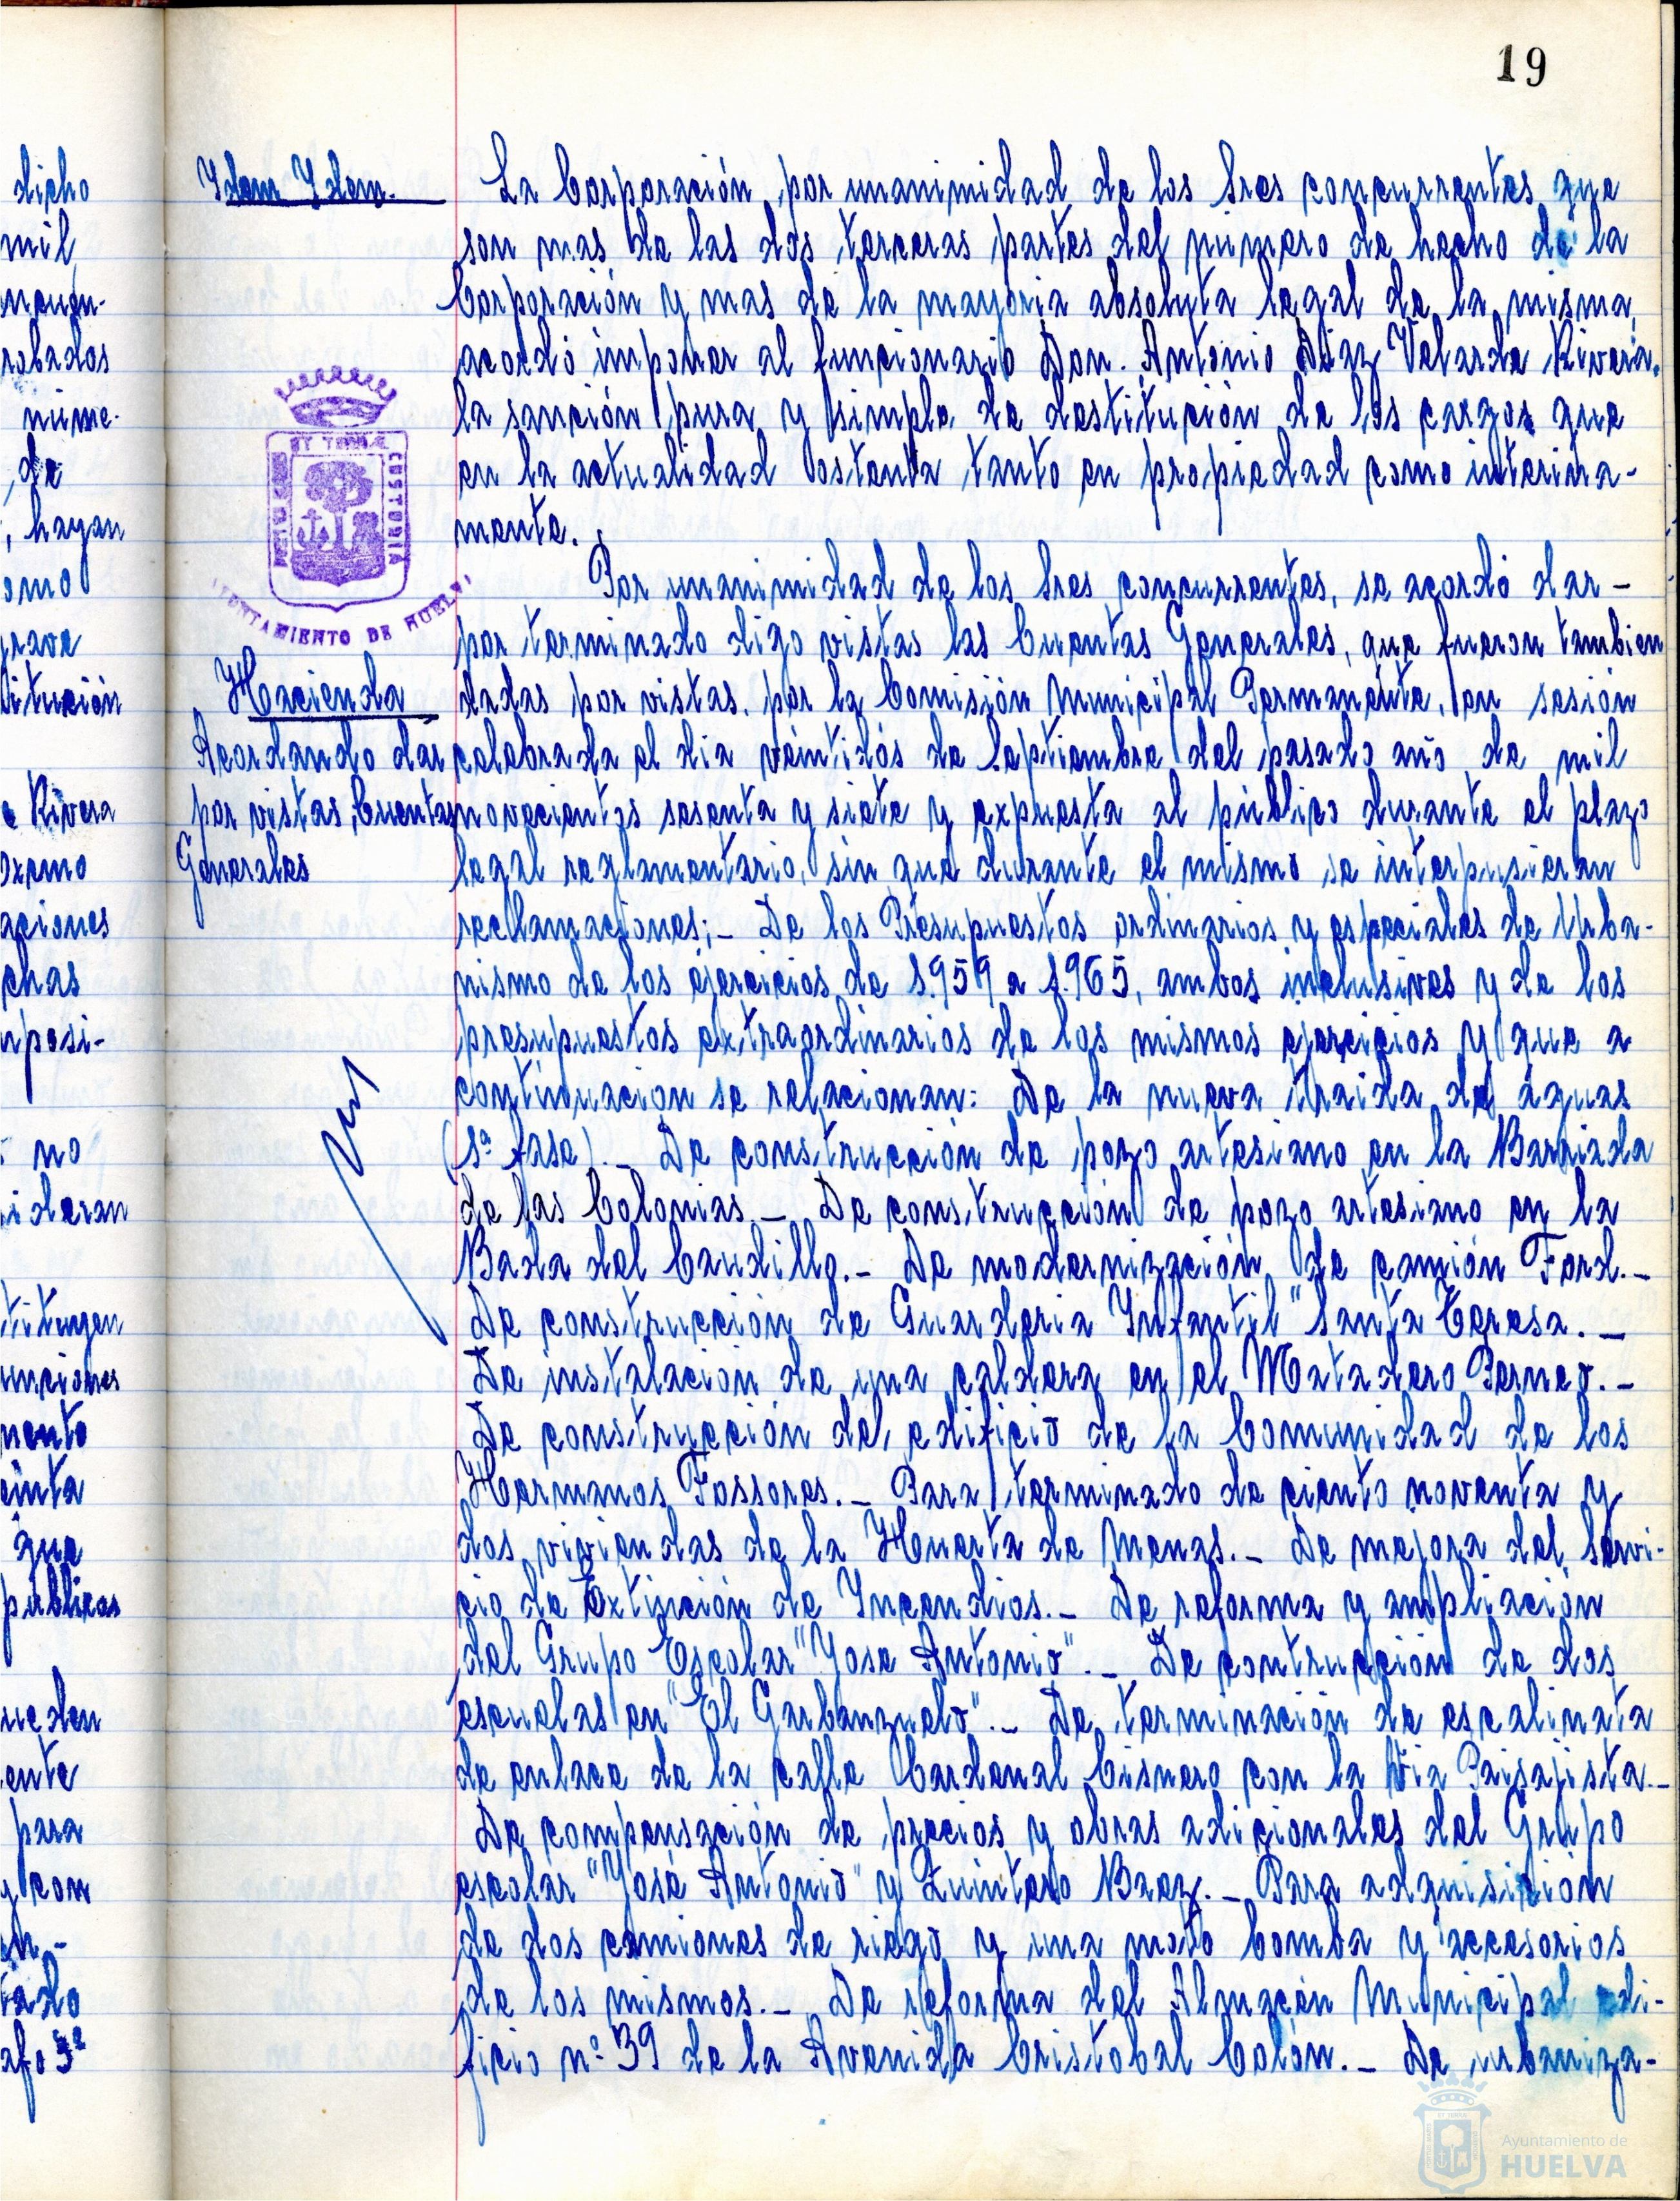 19
dicho
mil,
robados
núme-
de
; hayan
omo
grave
titución
e Rivera
aciones
chas
mposi-
no
ideran
tituyen
unciones
mento
que
públicos
ueden
ente
para
y con
tado
afo 3º
Idem Idem.
La Corporación, por unanimidad de los Sres concurrentes que
son mas de las dos terceras partes del número de hecho de la
Corporación y mas de la mayoria absoluta legal de la misma,
acordó imponer al funcionario Don. Antonio Díaz Velarde Rivera.
la sanción pura y simple de destitución de los cargos que
en la actualidad ostenta tanto en propiedad como interina-
mente.
PORTUS MARIS ET TERRAE CUSTODIA
AYUNTAMIENTO DE HUELVA
Por unanimidad de los Sres concurrentes, se acordó dar -
por terminado digo vistas las Cuentas Generales, que fueron tambien
Hacienda
dadas por vistas, por la Comisión Municipal Permanente, en sesión
Acordando dar
celebrada el dia veintidós de Septiembre del pasado año de mil
por vistas, Cuentas
novecientos sesenta y siete y expuesta al público durante el plazo
Generales
legal reglamentario, sin que durante el mismo se interpusieran
reclamaciones;- De los Presupuestos ordinarios y especiales de Urba-
nismo de los ejercicios de 1.959 a 1.965, ambos inclusives y de los
presupuestos extraordinarios de los mismos ejercicios y que a
continuacion se relacionan: De la nueva traida de águas
(1ª fase).- De construcción de pozo artesiano en la Barriada
de las Colonias.- De construcción de pozo artesiano en la
Bada del Caudillo.- De modernización de camión Ford.-
De construcción de Guarderia Infantil "Santa Teresa.-
De instalación de una caldera en el Matadero Perneo.-
De construcción del edificio de la Comunidad de los
Hermanos Fossores.- Para terminado de ciento noventa y
dos viviendas de la Huerta de Menas.- De mejora del Servi-
cio de Extinción de Incendios.- De reforma y ampliación
del Grupo Escolar "Jose Antonio".- De contrucción de dos
escuelas en "El Garbanzuelo".- De terminación de escalinata
de enlace de la calle Cardenal Cisnero con la Via Paisajista.-
De compensación de precios y obras adicionales del Grupo
escolar "José Antonio" y Quintero Baez.- Para adquisición
de dos camiones de riego y una moto bomba y accesorios
de los mismos.- De reforma del Almacén Municipal edi-
ficio nº 39 de la Avenida Cristobal Colón.- De urbaniza-
Ayuntamiento de
HUELVA